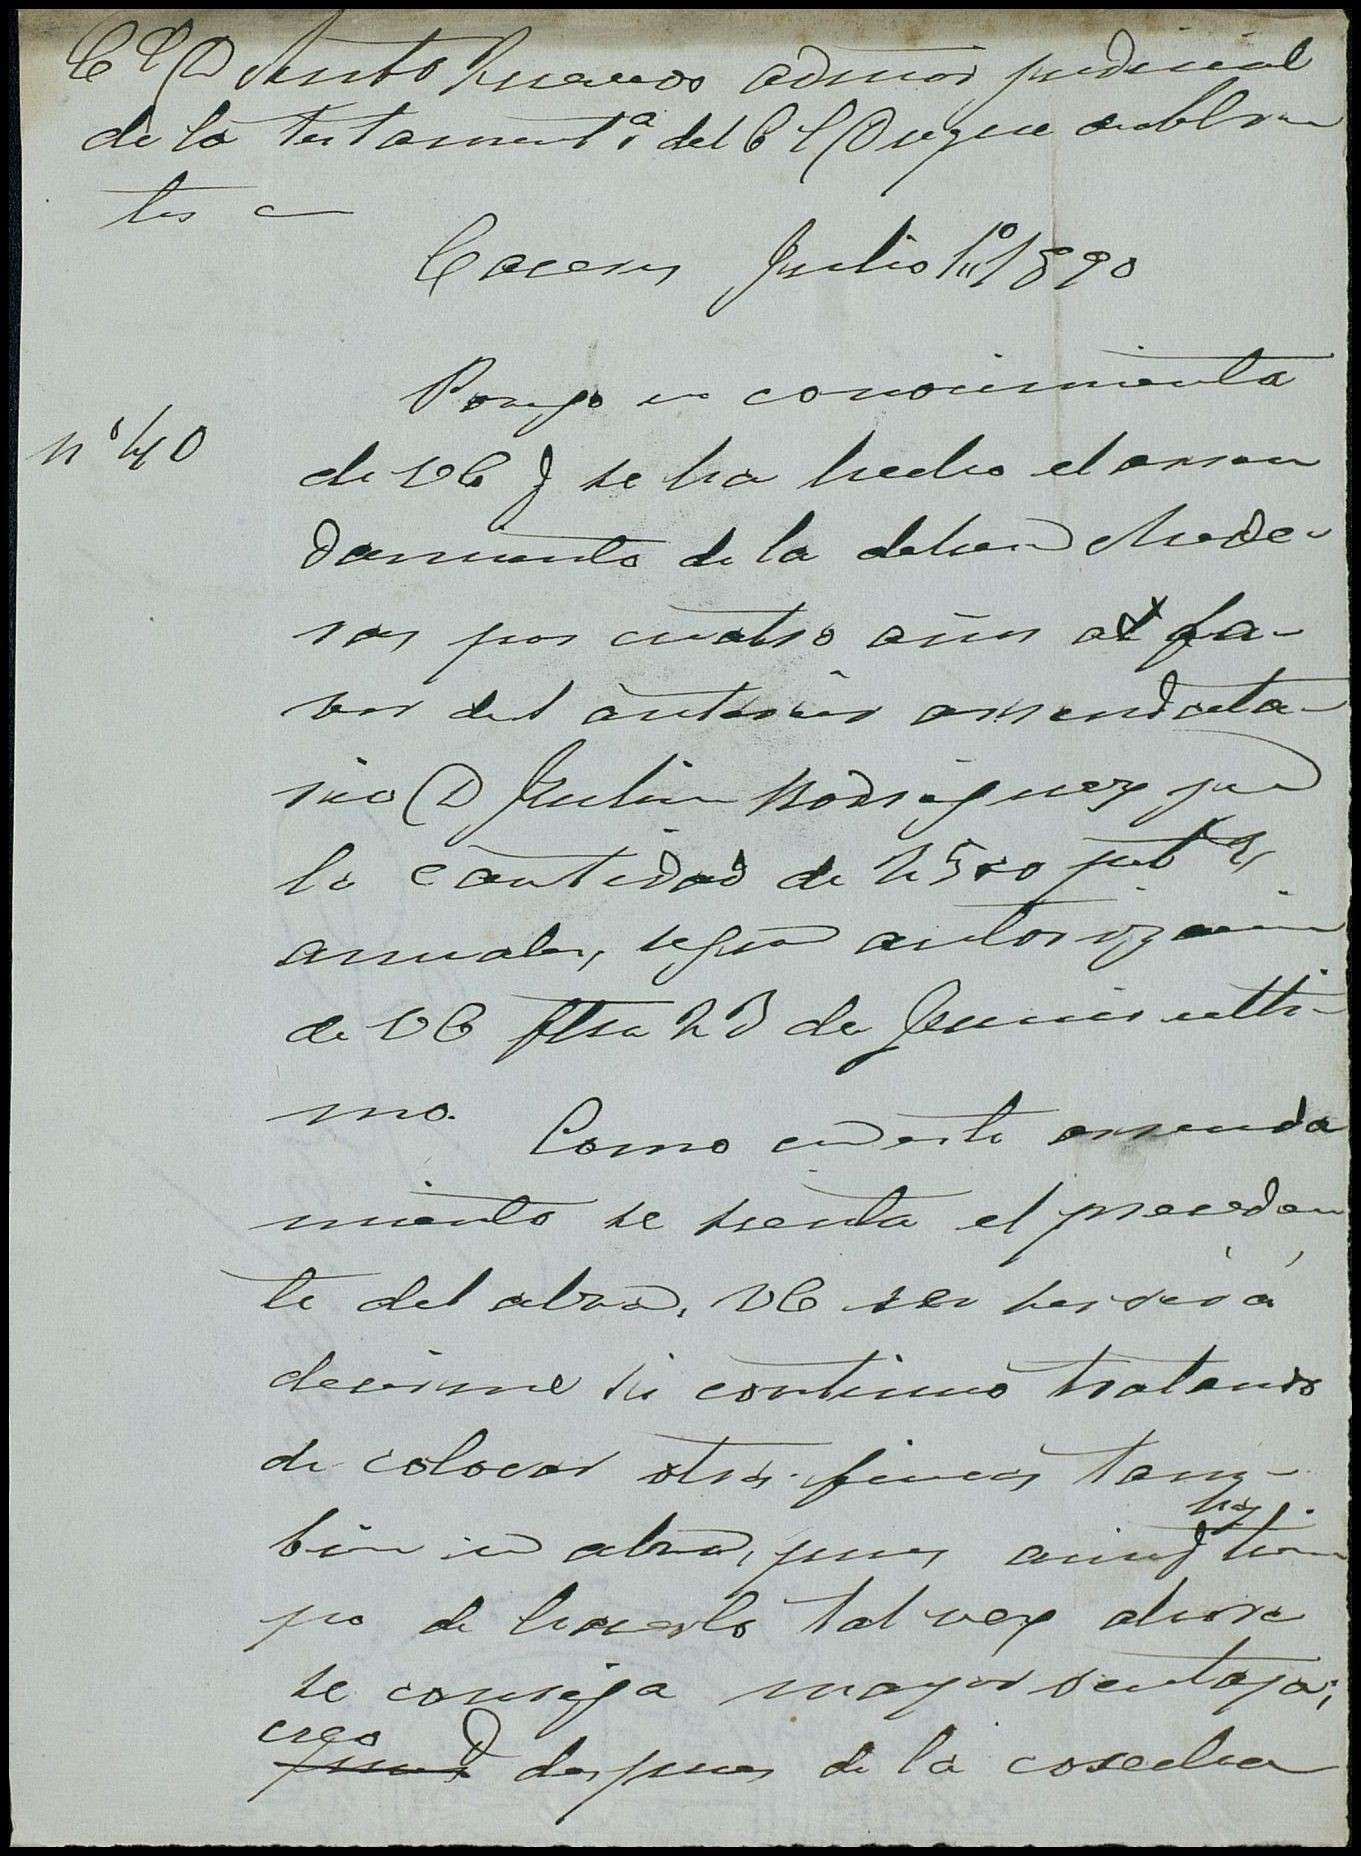 judicial
de la testamentª del E S Duque de Abran
tes
Caceres Julio 1º 1890
Nº 40
Pongo en conocimiento
de VE q se ha hecho el arren
damiento de la dehesa
por cuatro años a fa-
vor del anterior arrendata-
rio D Julian Rodriguez por
la cantidad de 2500 ptas
anuales, segun autorizacion
de VE fha 23 de Junio ulti-
mo.
Como en este arrenda
miento se sienta el preceden
te del alza, VE se servirá
decirme si continuo tratando
de colocar otras fincas tam-
bien en alza, pues aunq hay tiem
po de hacerlo tal vez ahora
se consiga mayor ventaja,
creo q despues de la cosecha